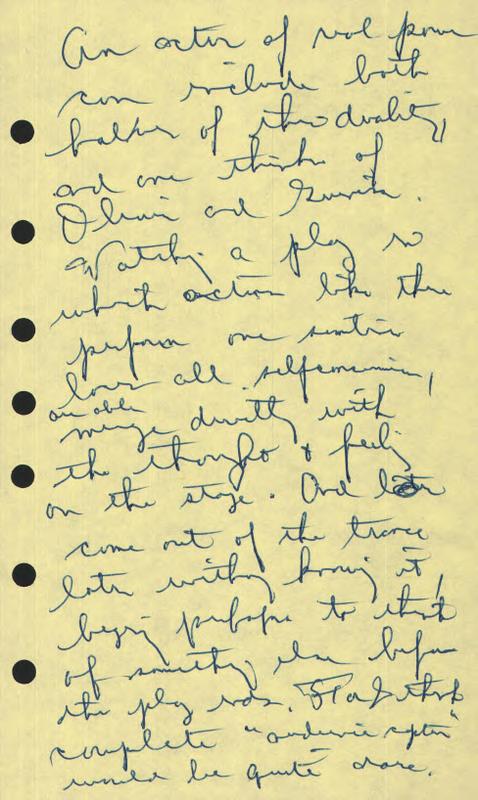 An actor of real power
can include both
halves of this duality,
and one thinks of
Olivier and Guinness.
Watching a play in
which actors like these
perform one
loses all selfconsciousness,
an able
merge directly with
the thoughts & feelings
on the stage. And later
come out of the trance
later without knowing it,
begin perhaps to think
of something else before
the play ends. I think
complete "audience capture"
would be quite rare.